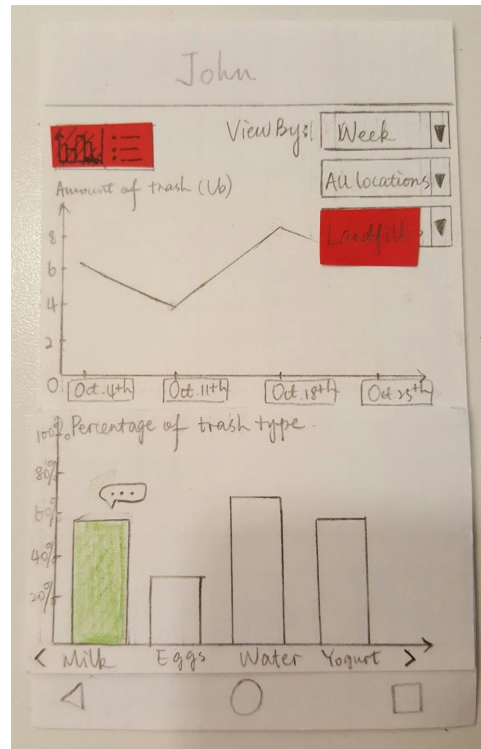 John
View By: Week
All locations
Landfill
Amount of trash (lb)
8
6
4
2
0
Oct.4th Oct.11th Oct.18th Oct.25th
Percentage of trash type
100%
80%
60%
40%
20%
Milk Eggs Water Yogurt